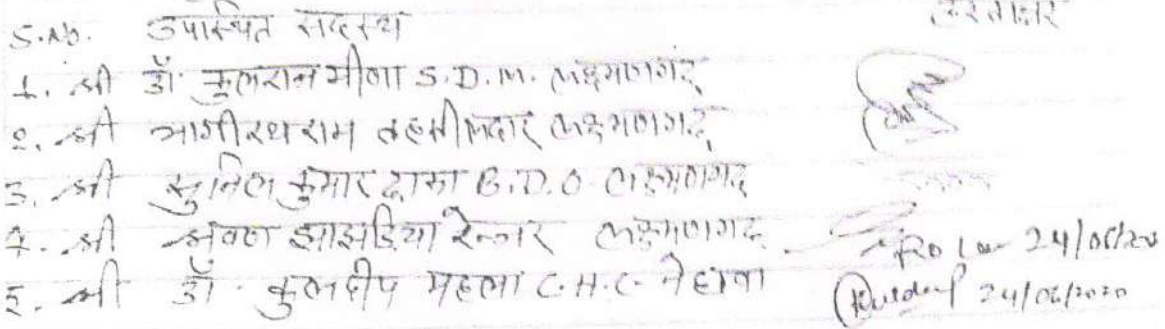 S.No. उपास्थित सदस्य हस्ताक्षर
1. श्री डॉ. कुलराज मीणा S.D.M. लक्ष्मणगढ़
2. श्री भागीरथराम तहसीलदार लक्ष्मणगढ़
3. श्री सुनिल कुमार ढाका B.D.O. लक्ष्मणगढ़
4. श्री श्रवण झाझडिया रेन्जर लक्ष्मणगढ़ 24/06/20
5. श्री डॉ. कुलदीप महला C.H.C. नेछवा Kuldeep 24/06/2020